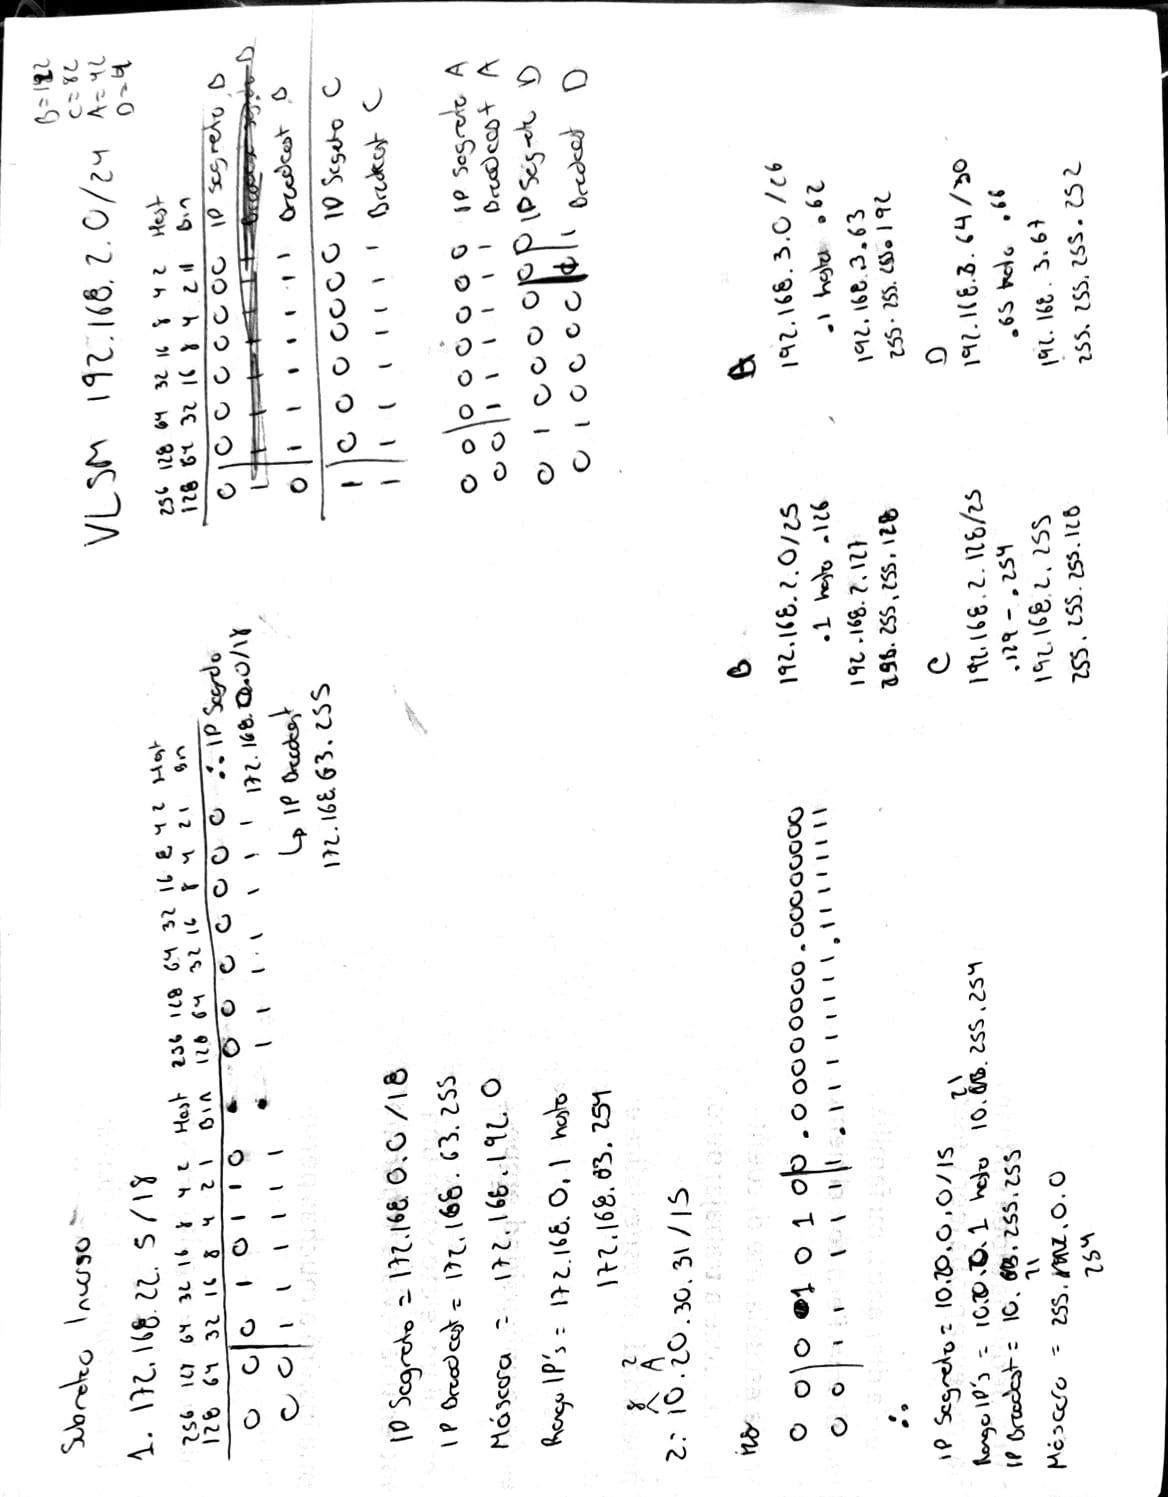 Subneteo Inverso
1. 172.168.22.5/18
256 128 64 32 16 8 4 2 Host 256 128 64 32 16 8 4 2 Host
128 64 32 16 8 4 2 1 Bin 128 64 32 16 8 4 2 1 Bin
0 0 0 1 0 1 1 0 . 0 0 0 0 0 0 0 0 ∴ IP Segmento
0 0 1 1 1 1 1 1 . 1 1 1 1 1 1 1 1 172.168.0.0/18
↳ IP Broadcast
172.168.63.255
IP Segmento = 172.168.0.0/18
IP Broadcast = 172.168.63.255
Máscara = 172.168.192.0
Rango IP's = 172.168.0.1 hasta
172.168.63.254
8 2
A
2: 10.20.30.31/15
0 0 0 1 0 1 0 0.00000000.00000000
.11111111.11111111
∴
IP Segmento = 10.20.0.0/15
21
Rango IP's = 1 hasta 10. .255.254
IP Broadcast = 10. .255.255
21
Máscara = 255. .0.0
254
VLSM 192.168.2.0/24
B=122
C=82
A=42
D=4
256 128 64 32 16 8 4 2 Host
128 64 32 16 8 4 2 1 Bin
0 0 0 0 0 0 0 0 IP segmento B
0 1 1 1 1 1 1 1 Broadcast B
1 0 0 0 0 0 0 0 IP Segmento C
1 1 1 1 1 1 1 1 Broadcast C
0 0 0 0 0 0 0 0 IP Segmento A
0 0 1 1 1 1 1 1 Broadcast A
0 1 0 0 0 0 0 0 IP Segmento D
0 1 0 0 0 0 1 1 Broadcast D
B
192.168.2.0/25
.1 hasta .126
192.168.2.127
255.255.255.128
A
192.168.3.0/26
.1 hasta .62
192.168.3.63
255.255.255.192
C
192.168.2.128/25
.129 - .254
192.168.2.255
255.255.255.128
D
192.168.3.64/30
.65 hasta .66
192.168.3.67
255.255.255.252